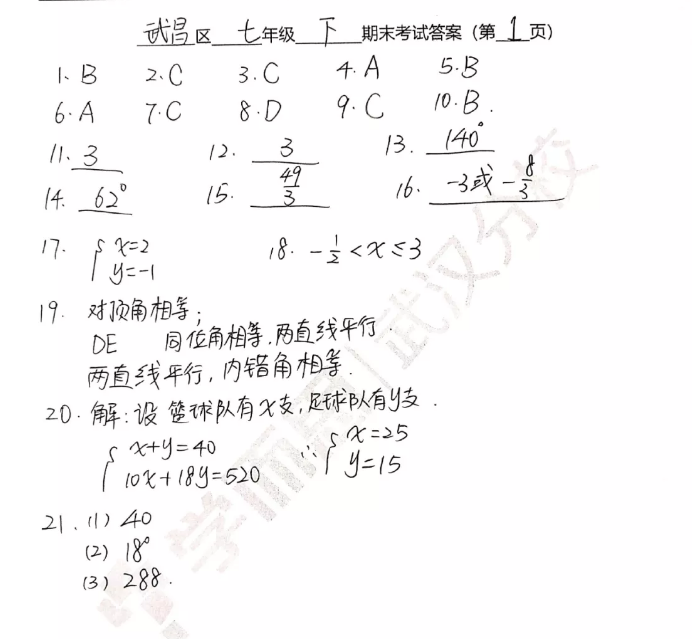 武昌区 七年级 下 期末考试答案（第 1 页）
1、B 2、C 3、C 4、A 5、B
6、A 7、C 8、D 9、C 10、B.
11. 3 12. 3 13. 140°
14. 62° 15. 49/3 16. -3或-8/3
17. { x=2 18. -1/2 < x ≤ 3
y=-1
19. 对顶角相等；
DE 同位角相等，两直线平行.
两直线平行，内错角相等.
20. 解：设篮球队有x支，足球队有y支.
{ x+y=40 ∴ { x=25
10x+18y=520 y=15
21. (1) 40
(2) 18°
(3) 288.
学而思武汉分校